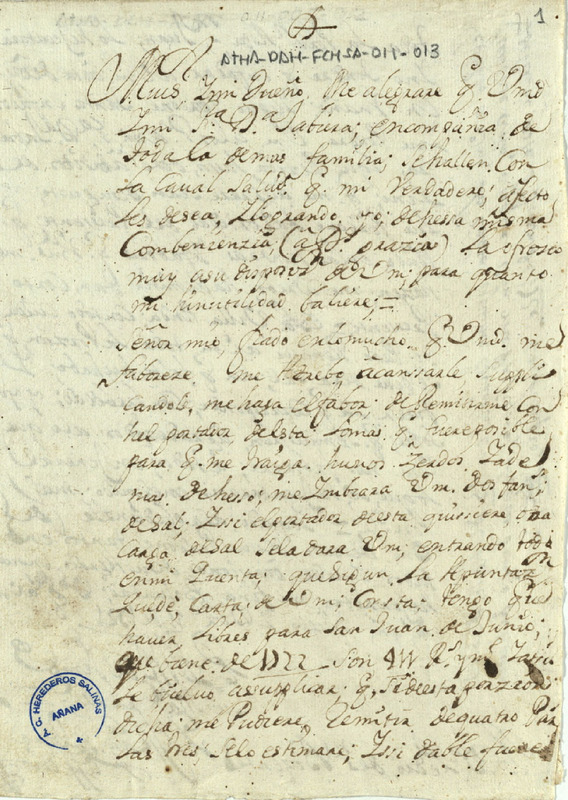 1
ATHA-DAH-FCHSA-011-013
Mui S.r mi Dueño. Me alegrare q. Vmd
mi S.ra D.a Isabura; en compañia, de
toda la demas familia; se hallen Con
la Caval Salud; q. mi Verdadero; afecto
les desea, logrando yo; de essa misma
Combenienzia; (a D.s grazia) la ofresco
muy a su disposiz.n de Vm; para quanto
mi hinutilidad baliere; =
Señor mio, fiado en lo mucho q. Vmd. me
faboreze me atrebo, a canssarle Suppli
candole, me haga el fabor; de Remitirme Con
el portador desta, lo mas q. fuere posible
para q. me traiga. hunos Zerdos y ade
mas de hesso; me Imbiara Vm. dos fan.s
de sal; y ssi el portador desta quissiere una
carga de sal se la dara Vm; entrando todo
en mi quenta; que sigun la Apuntaz.on
quede, Carta; de Vm; Consta; tengo que
haver libres para San Juan de Junio;
que biene; de 1722 Son R.s y m.s
le buelvo a ssupplicar; q. si de esta porzion
dicha; me Pudiere, Remitir de quatro Par
tes tres se lo estimare; y ssi dable fuere
A. C. HEREDEROS SALINAS
AÑANA